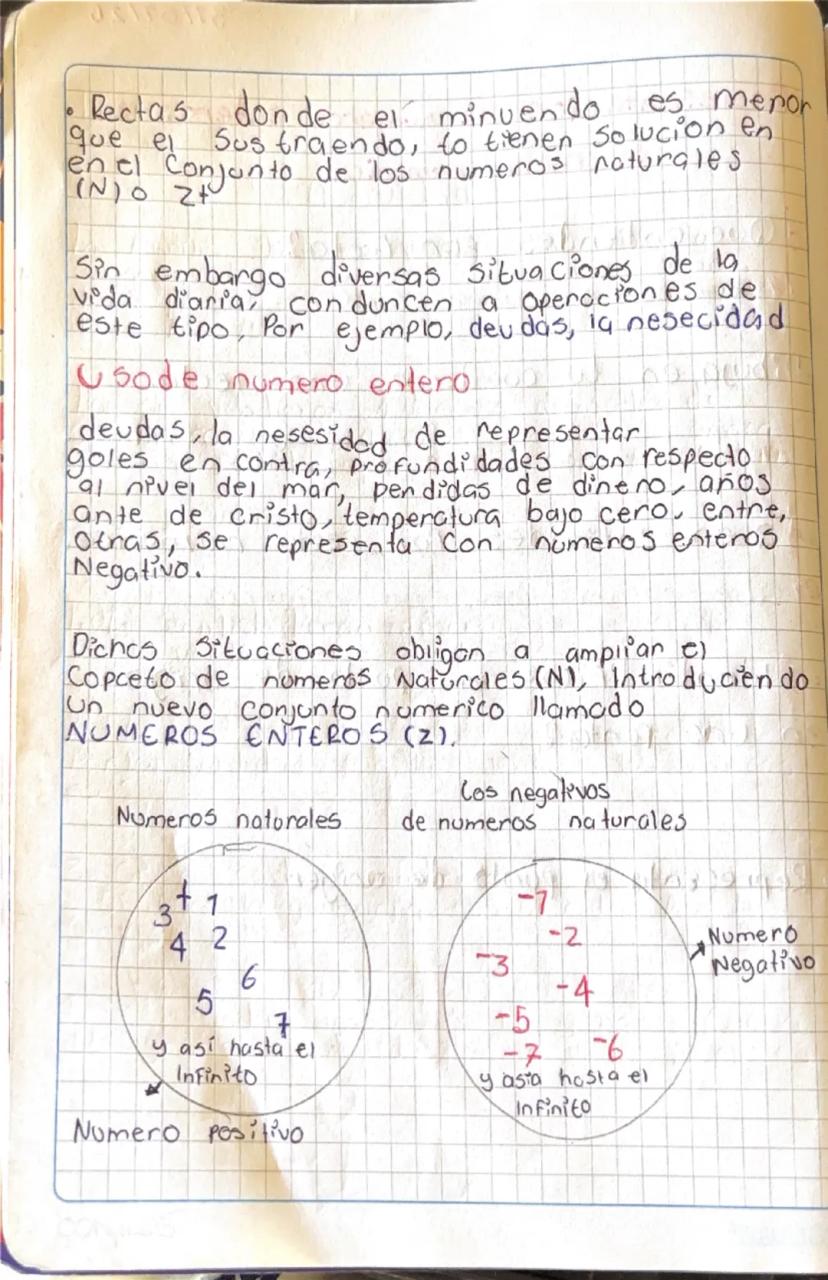 . Rectas donde el minuendo es menor
que el sustraendo, to tienen solucion en
en el conjunto de los numeros naturales
(N) o Z+
Sin embargo diversas situaciones de la
vida diaria, conduncen a operaciones de
este tipo, Por ejemplo, deudas, la nesecidad
Uso de numero entero
deudas, la nesesidad de representar
goles en contra, profundidades con respecto
al nivel del mar, perdidas de dinero, años
ante de cristo, temperatura bajo cero, entre,
otras, se representa con números enteros
Negativo.
Dichas situaciones obligan a ampliar el
Copceto de numeros Naturales (N), Introduciendo
un nuevo conjunto numerico llamado
NUMEROS ENTEROS (Z).
Los negativos
Numeros naturales de numeros naturales
+ 1
3
4 2
6
5
7
y así hasta el
Infinito
Numero positivo
-1
-2
-3
-4
-5
-7 -6
y asia hasta el
Infinito
Numero
Negativo